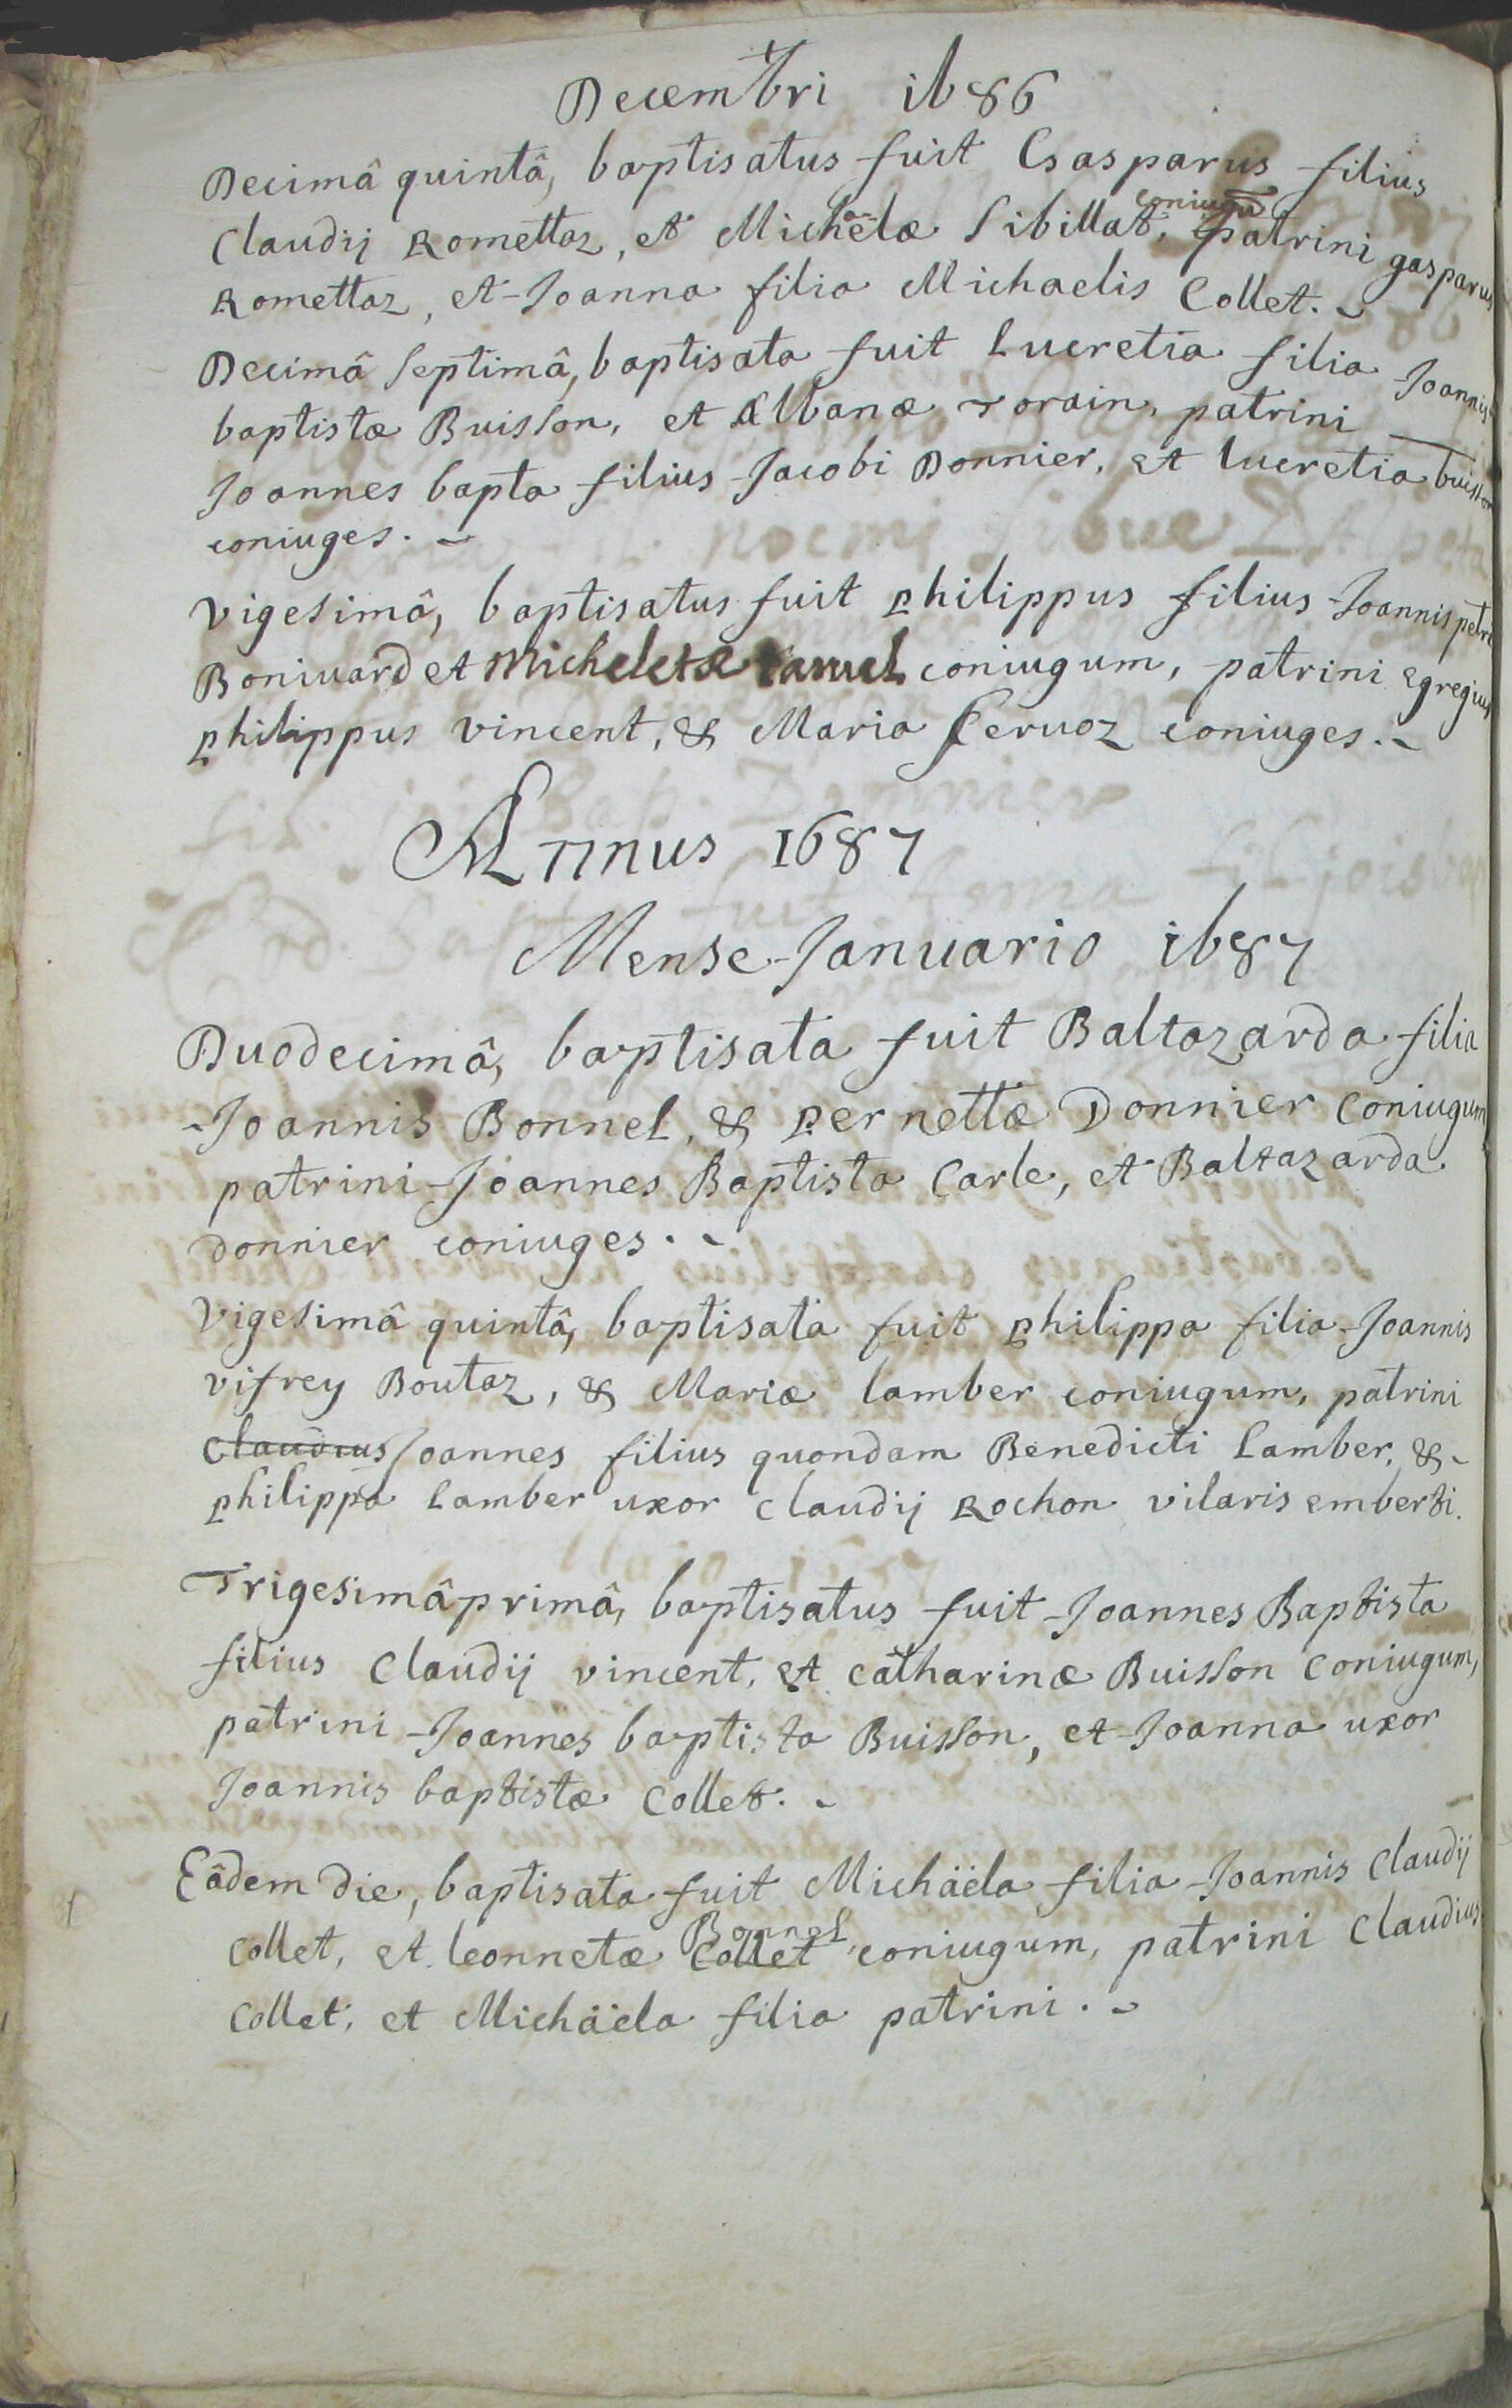 Decembri 1686
Decimâ quintâ, baptisatus fuit Gasparus filius
Claudij Romettaz, et Michaëlæ Sibillat, coniugũ patrini gasparus
Romettaz, et Joanna filia Michaelis Collet.
Decimâ septimâ, baptisata fuit Lucretia filia Joannis
baptistæ Buisson, et Albanæ Torain, patrini
Joannes bapta filius Jacobi Donnier, et lucretia buisson
coniuges.
Vigesimâ, baptisatus fuit philippus filius Joannis petri
Boniuard et Micheletæ coniugum, patrini egregius
philippus vincent, & Maria feruoz coniuges.
Annus 1687
Mense Januario 1687
Duodecimâ, baptisata fuit Baltazarda filia
Joannis Bonnel, & pernettæ Donnier coniugum
patrini Joannes Baptista Carle, et Baltazarda
donnier coniuges.
Vigesimâ quintâ, baptisata fuit philippa filia Joannis
vifrey Boutaz, & Mariæ lamber coniugum, patrini
Claudius Joannes filius quondam Benedicti Lamber, &
philippa Lamber uxor Claudij Rochon vilaris emberti.
Trigesimâ primâ, baptisatus fuit Joannes Baptista
filius Claudij vincent, et catharinæ Buisson coniugum,
patrini Joannes baptista Buisson, et Joanna uxor
Joannis baptistæ Collet.
Eâdem die, baptisata fuit Michäela filia Joannis Claudij
Collet, et leonnetæ Collet Bonnel coniugum, patrini Claudius
Collet, et Michäela filia patrini.